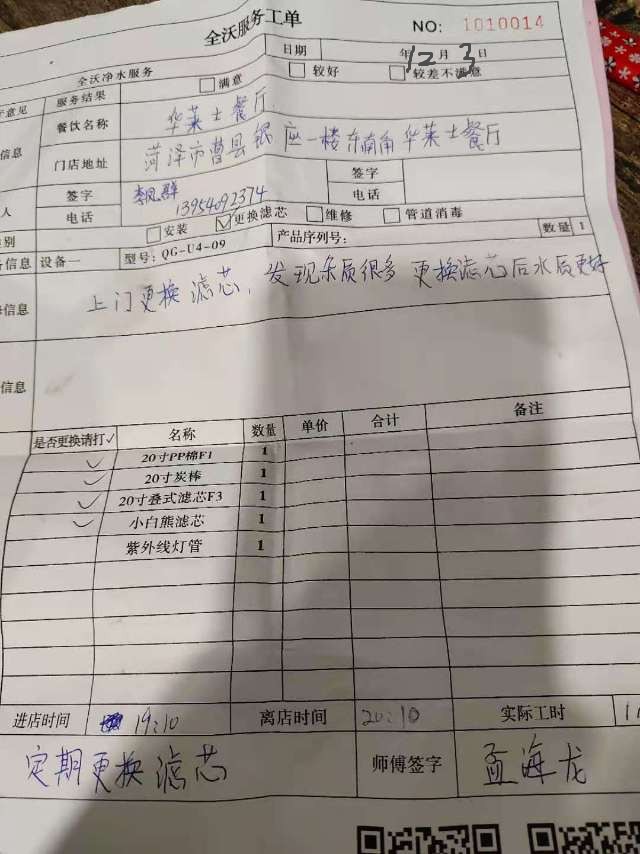 全沃服务工单
NO: 1010014
全沃净水服务 日期 年12月3日
意见 服务结果 满意 较好 较差不满意
信息 餐饮名称 华莱士餐厅
门店地址 菏泽市曹县银座一楼东南角华莱士餐厅
人 签字 签字
电话 13954092374 电话
类别 安装 更换滤芯 维修 管道消毒
备信息 设备一 型号: QG-U4-09 产品序列号: 数量 1
信息 上门更换滤芯, 发现杂质很多 更换滤芯后水质更好
信息
是否更换请打✓ 名称 数量 单价 合计 备注
✓ 20寸PP棉F1 1
✓ 20寸炭棒 1
✓ 20寸叠式滤芯F3 1
✓ 小白熊滤芯 1
紫外线灯管 1
进店时间 19:10 离店时间 20:10 实际工时
定期更换滤芯 师傅签字 孟海龙